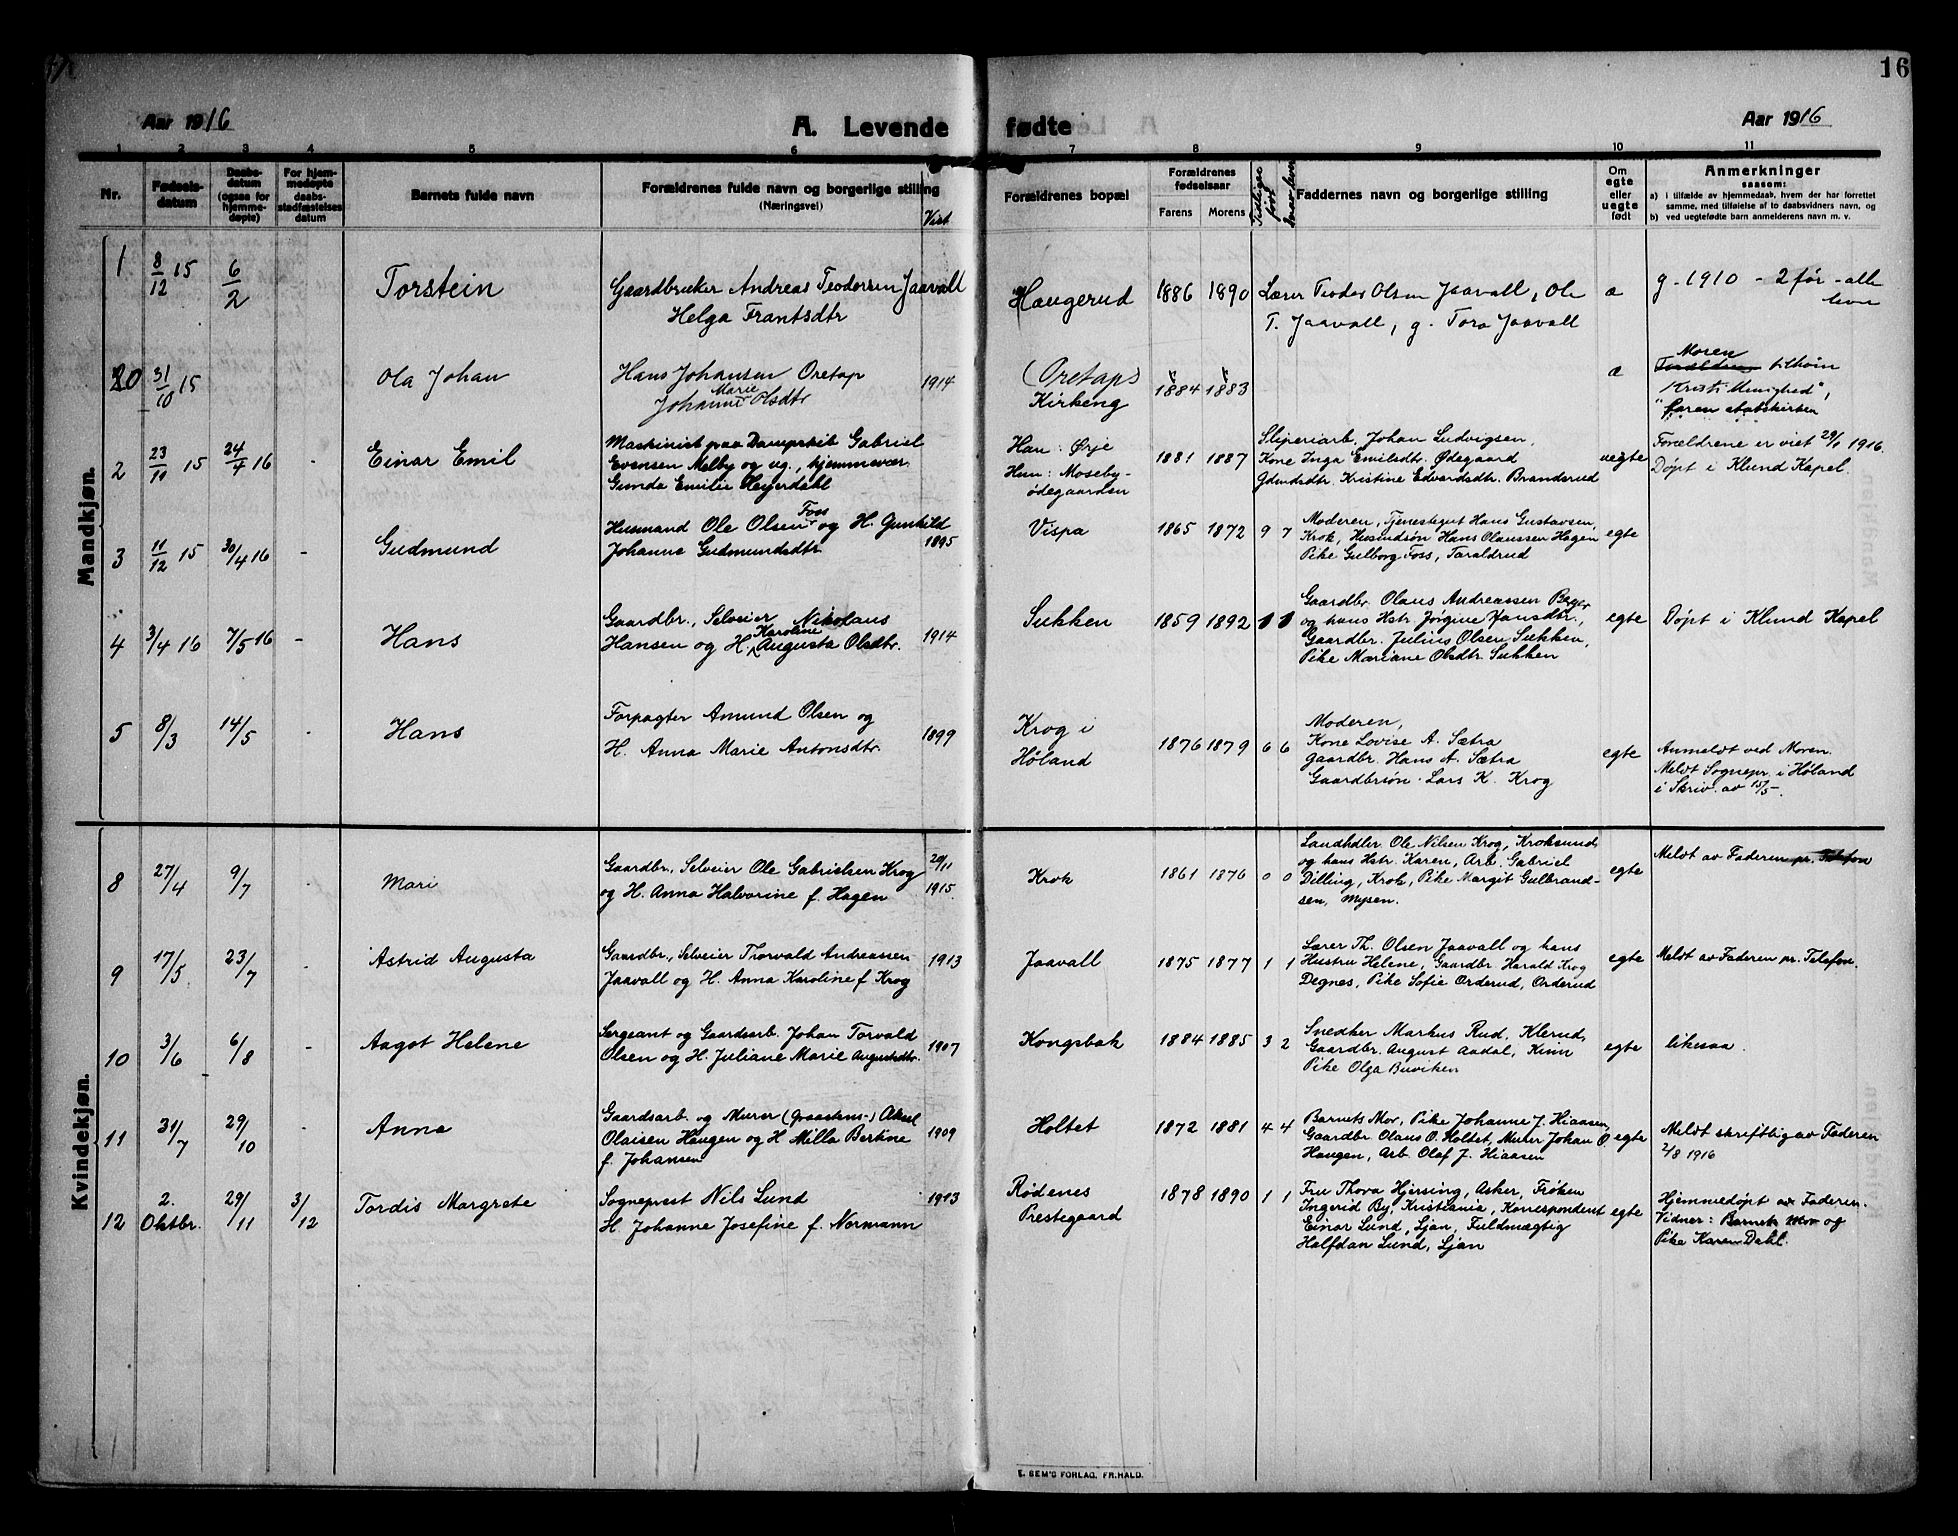 16
Aar 1916
A. Levende fødte
Aar 1916
1 2 3 4 5 6 7 8 9 10 11
Nr.
Fødsels-
datum
Daabs-
datum
(ogsaa for
hjemme-
døpte)
For hjem-
medøpte
daabs-
stadfæstelses
datum
Barnets fulde navn
Forældrenes fulde navn og borgerlige stilling
(Næringsvei)
Viet
Forældrenes bopæl
Forældrenes
fødselsaar
Farens Morens
Tidligere
født
Faddernes navn og borgerlige stilling
Om
egte
eller
uegte
født
Anmerkninger
saasom:
a) i tilfælde av hjemmedaab, hvem der har forrettet
samme, med tilføielse af to daabsvidners navn, og
b) ved uegtefødte barn anmelderens navn m. v.
Mandkjøn.
1 8/12 15 6/2 Torstein
Gaardbruker Andreas Teodorsen Jaavall
Helga Frantsdtr
Haugerud 1886 1890
Lærer Teodor Olsen Jaavall, Ole
T. Jaavall, g. Tora Jaavall
g. 1910 - 2 før - alle
leve
20 31/10 15 Ola Johan
Hans Johansen Oretop
Marie
Johanne Olsdtr
1914
(Oretop)
Kirkeng
1884 1883
Moren
Forældrene tilhøin
Kristi Menighed",
"faren statskirken
2 23/11 15 24/4 16 - Einar Emil
Maskinist paa Dampskib Gabriel
Evensen Melby og ug., hjemmevær.
Gunda Emilie Heyerdahl
Han: Ørje
Hun: Moseby-
ødegaarden
1881 1887
Sliperiarb. Johan Ludvigsen,
Kone Inga Emilsdtr. Ødegaard
Gdmdsdtr. Kristine Edvardsdtr. Brandsrud
uegte
Forældrene er viet 29/1 1916.
Døpt i Klund Kapel.
3 11/12 15 30/4 16 - Gudmund
Foss
Husmand Ole Olsen og H. Gunhild
Johanne Gudmundsdtr
1895
Vispa 1865 1872 9 7
Moderen, Tjenestegut Hans Gustavsen,
Krok, Husmdsøn Hans Olaussen Hagen
Pike Gulborg Foss, Taraldrud
egte
4 3/4 16 7/5 16 - Hans
Gaardbr., Selveier Nikolaus
Karoline
Hansen og H. Augusta Olsdtr.
1914
Sukken 1859 1892 1 1
Gaardbr. Olaus Andreassen Berger
og hans Hstr. Jørgine Hansdtr.,
Gaardbr. Julius Olsen Sukken,
Pike Mariane Olsdtr. Sukken
egte
Døpt i Klund Kapel
5 8/3 14/5 - Hans
Forpagter Amund Olsen og
H. Anna Marie Antonsdtr.
1899
Krog i
Høland
1876 1879 6 6
Moderen,
Kone Lovise A. Sætra
gaardbr. Hans A. Sætra
Gaardbrsøn Lars K. Krog
egte
Anmeldt ved Moren.
Meldt Sognepr. i Høland
i Skriv. av 15/5.
Kvindekjøn.
8 27/4 9/7 - Mari
Gaardbr., Selveier Ole Gabrielsen Krog
og H. Anna Halvorine f. Hagen
29/11
1915.
Krok 1861 1876 0 0
Landhdler Ole Nilsen Krog, Kroksund,
og hans Hstr. Karen, Arb. Gabriel
Dilling, Krok, Pike Margit Gulbrand-
sen, Mysen.
egte
Meldt av Faderen pr. Telefon
9 17/5 23/7 - Astrid Augusta
Gaardbr., Selveier Thorvald Andreassen
Jaavall og H. Anna Karoline f. Krog
1913
Jaavall 1875 1877 1 1
Lærer Th. Olsen Jaavall og hans
Hustru Helene, Gaardbr. Harald Krog
Degnes, Pike Sofie Orderud, Orderud
egte
Meldt av Faderen pr. Telefon.
10 3/6 6/8 - Aagot Helene
Sergeant og Gaardsarb. Johan Torvald
Olsen og H. Juliane Marie Augustdtr.
1907
Kongsbak 1884 1885 3 2
Snedker Markus Rud, Klerud,
Gaardbr. August Aadal, Kinn
Pike Olga Buviken
egte
likesaa.
11 31/7 29/10 - Anna
Gaardsarb. og Murer (Graastens-) Aksel
Olaisen Haugen og H Milla Bertine
f. Johansen
1909
Holtet 1872 1881 4 4
Barnets Mor, Pike Johanne J. Hiaasen,
Gaardbr. Olaus O. Holtet, Murer Johan O.
Haugen, Arb. Olaf J. Hiaasen
egte
Meldt skriftlig av Faderen
2/8 1916
12 2. Oktbr. 29/11 3/12 Tordis Margrete
Sogneprest Nils Lund
H. Johanne Josefine f. Normann
1913
Rødenes
Prestegaard
1878 1890 1 1
Fru Thova Hjersing, Asker, Frøken
Ingerid By, Kristiania, Korrespondent
Einar Lund, Ljan, Fuldmægtig
Halfdan Lund, Ljan
egte
Hjemmedøpt av Faderen.
Vidner: Barnets Mor og
Pike Karen Dahl.
E. SEM'S FORLAG, FR.HALD.